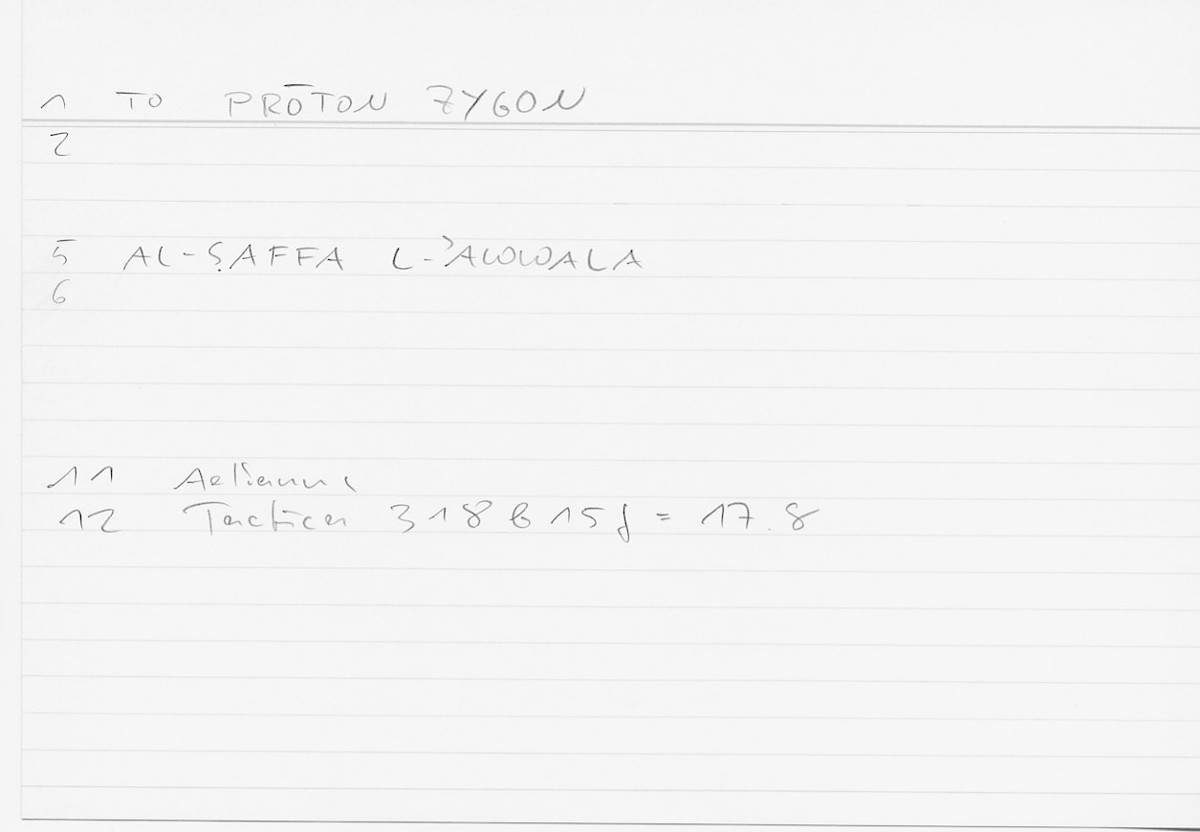 1 TO PRŌTON ZYGON
2
5 AL-ṢAFFA L-ʾAWWALA
6
11 Aelianus
12 Tactica 318 b 15f = 17.8